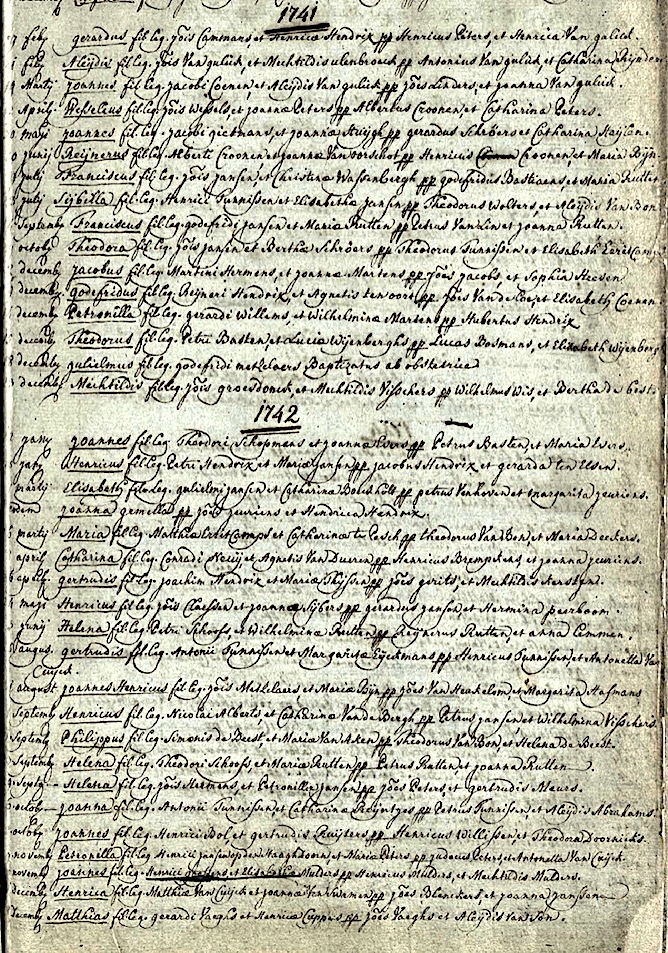 1741
feby gerardus fil. leg. jois Cammans, et Henricæ Hendrix pp Henricus Peters, et Henrica Van gulick.
feby Aleydis fil. leg. jois Van gulick, et Mechtildis ulenbroeck pp Antonius Van gulick, et Catharina
Martij joannes fil. leg. jacobi Coenen et Aleydis Van gulick pp jois Linders, et joanna Van gulick.
Aprilis Wesselius fil. leg. jois Wessels, et joannæ Peters pp Albertus Croonen, et Catharina Peters.
maji joannes fil. leg. jacobi giebmans, et joannæ Huigh pp gerardus Schröers et Catharina
junij Reijnerus fil. leg. Alberti Croonen et joannæ Van oorschot pp Henricus Croonen, et Maria
july Franciscus fil. leg. jois jansen, et Christinæ Wassenbergh pp godefridus Bastiaens et Maria Rutten
july Sijbilla fil. leg. Henrici Tunnissen, et Elisabethæ jansen pp Theodorus Wolters, et Aleydis Van Bon
Septemb Franciscus fil. leg. godefridi jansen, et Mariæ Rutten pp Petrus et joanna Rutten.
octob Theodora fil. leg. jois jansen, et Berthæ Schröers pp Theodorus Tunnissen et Elisabeth
decemb jacobus fil. leg. Martini Hermens, et joannæ Martens pp jois jacobs, et Sophia Heesen
decemb godefridus fil. leg. Reijneri Hendrix, et Agnetis ten oort pp jois Van de Loo, et Elisabeth Coenen
decemb Petronilla fil. leg. gerardi Willems, et Wilhelminæ Martens pp Hubertus Hendrix
decemb Theodorus fil. leg. Petri Basten, et Lucia Wijenberghs pp Lucas Bosmans, et Elisabeth Wijenbergh
decemb gulielmus fil. leg. godefridi metselaers Baptizatus ab obstetrice
decemb Mechtildis fil. leg. jois groesdonck, et Mechtildis Visschers pp Wilhelmus Wis, et Bertha de
1742
jany joannes fil. leg. Theodori Schopmans et joannæ Evers pp Petrus Basten, et Maria Evers.
jany Henricus fil. leg. Petri Hendrix et Mariæ jansen pp jacobus Hendrix et gerarda ten Elsen.
martij Elisabeth fil. leg. gulielmi jansen et Catharinæ pp petrus Van hoven et margarita jeuriens.
joanna gemella pp jois jeuriens et Hendrica Hendrix.
martij Maria fil. leg. Matthiæ et Catharinæ te Posch pp theodorus Van Bon, et Maria Deckers.
april Catharina fil. leg. Conradi et Agnetis Van Dueren pp Henricus et joanna jeuriens.
gertrudis fil. leg. joachim Hendrix et Mariæ Thijssen pp jois gerits, et Mechtildis
maji Henricus fil. leg. jois Claessen et joannæ Sijbers pp gerardus jansen et Hermina peerboom.
junij Helena fil. leg. Petri Schoofs, et Wilhelminæ Rutten pp Reijnerus Rutten, et anna Lemmen.
augus. gertrudis fil. leg. Antonii Tunnissen, et Margaritæ Eyckmans pp Henricus Tunnissen, et Antonetta Van
Cuijck.
august joannes Henricus fil. leg. jois Metselaers et Mariæ pp jois Van Heukelom, et Margarita Hofmans
Septemb Henricus fil. leg. Nicolai Alberts, et Catharinæ Van de Bergh, pp Petrus jansen, et Wilhelmina Visschers.
Septemb Philippus fil. leg. Simonis de Beest, et Mariæ Van Aken, pp Theodorus Van Bon, et Helena de Beest.
Septemb Helena fil. leg. Theodori Schoofs, et Mariæ Rutten pp Petrus Rutten, et joanna Rutten.
Septb Helena fil. leg. jois Hermens, et Petronillæ jansen pp jois Peters, et gertrudis Meurs.
octob joanna fil. leg. Antonii Tunnissen, et Catharinæ Reijntges pp Petrus Tunnissen, et Aleydis Abrahams.
octob joannes fil. leg. Henrici Bol, et gertrudis Ruijters pp Henricus Willissen, et Theodora Doornicks.
novemb Petronilla fil. leg. Henrici jansen op den Haaghdoorn, et Mariæ Peters pp judocus Peters, et Antonetta Van Cuijck.
novemb joannes fil. leg. Henrici et Elisabethæ Mulders pp Henricus Mulders, et Mechtildis Mulders.
decemb Henrica fil. leg. Matthiæ Van Cuijck, et joannæ pp jois Blenckers, et joanna janssen
decemb Matthias fil. leg. gerardi Vaeghs et Henricæ Cuppes pp jois Vaeghs et Aleydis van Son.